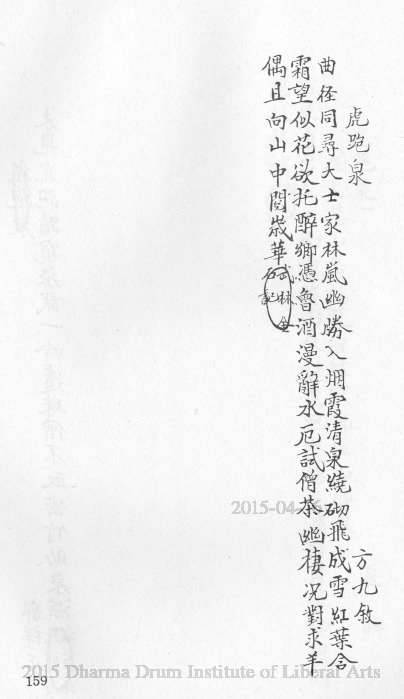 虎跑泉
方九敘
曲徑同尋大士家林嵐幽勝入烟霞清泉繞砌飛成雪紅葉含
霜望似花欲托醉鄉憑魯酒漫辭水厄試僧茶幽棲况對求羊
偶且向山中閱歲華
武林金
石記
159
2015-04-
2015 Dharma Drum Institute of Liberal Arts